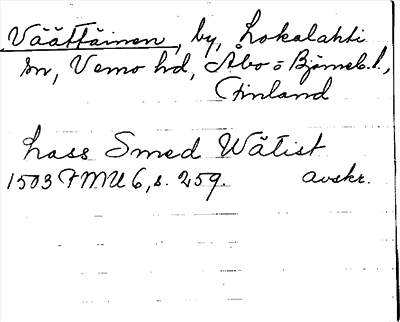 Väättäinen, by, Lokalahti
sn, Vemo hd, Åbo o Björneb. l.,
Finland
Lass Smed Wätist
1503 FMU 6, s. 259. avskr.